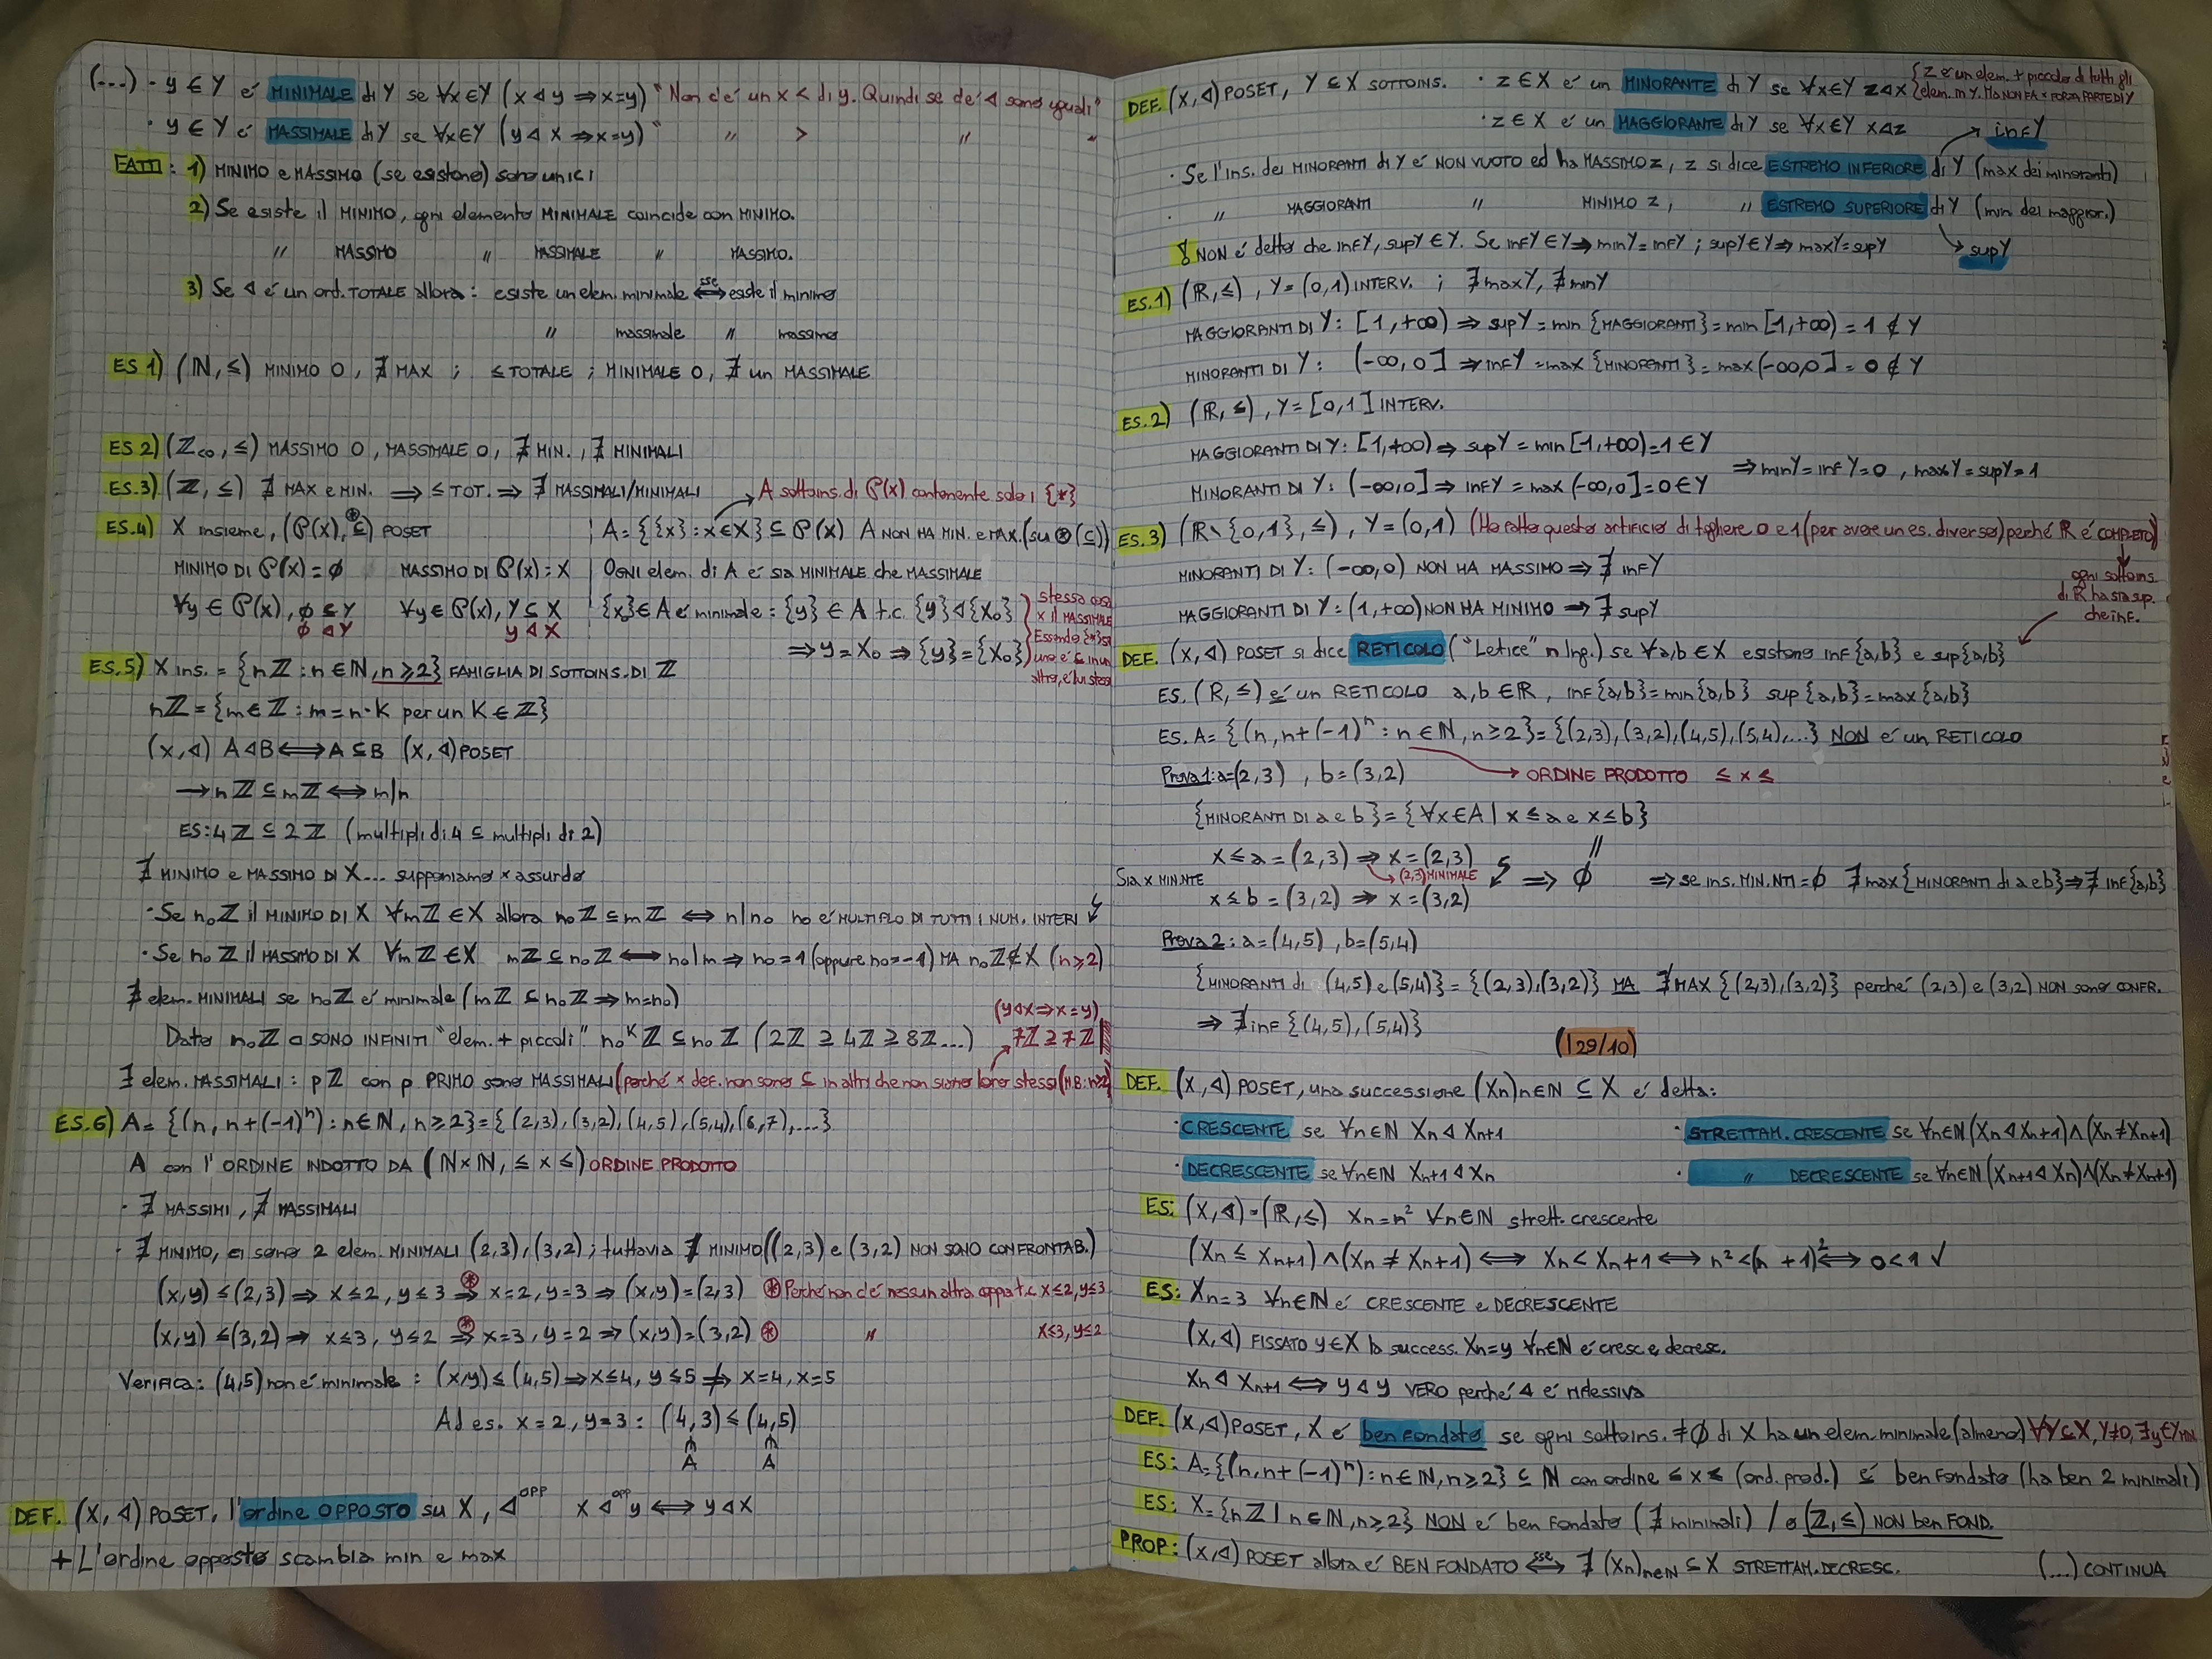 (...) · y ∈ Y é MINIMALE di Y se ∀x∈Y (x ⊲ y ⇒ x=y) "Non c'é un x < di y. Quindi se c'é ⊲ sono uguali"
· y ∈ Y é MASSIMALE di Y se ∀x∈Y (y ⊲ x ⇒ x=y) " // > // "
FATTI: 1) MINIMO e MASSIMO (se esistono) sono unici
2) Se esiste il MINIMO, ogni elemento MINIMALE coincide con MINIMO.
// MASSIMO // MASSIMALE // MASSIMO.
3) Se ⊲ é un ord. TOTALE allora: esiste un elem. minimale ⟺ sse esiste il minimo
// massimale // massimo
ES 1) (ℕ, ≤) MINIMO 0, ∄ MAX ; ≤ TOTALE ; MINIMALE 0, ∄ un MASSIMALE
ES 2) (ℤ<0, ≤) MASSIMO 0, MASSIMALE 0, ∄ MIN., ∄ MINIMALI
ES.3) (ℤ, ≤) ∄ MAX e MIN. ⟹ ≤ TOT. ⇒ ∄ MASSIMALI/MINIMALI
A sottoins. di P(x) contenente solo i {*}
ES.4) X insieme, (P(x), ⊆) POSET ⊛
A = {{x} : x∈X} ⊆ P(x) A NON HA MIN. e MAX. (su ⊛(⊆))
MINIMO DI P(x) = ∅ MASSIMO DI P(x) : X
OGNI elem. di A é sia MINIMALE che MASSIMALE
∀y ∈ P(x), ∅ ⊆ Y ∀y ∈ P(x), Y ⊆ X
∅ ⊲ Y y ⊲ X
{x₀} ∈ A é minimale : {y} ∈ A t.c. {y} ⊲ {X₀}
⇒ y = X₀ ⇒ {y} = {X₀}
stessa cosa
x il MASSIMALE
Essendo {*} se
uno é ⊆ in un
altro, é lui stesso
ES.5) X ins. = {nℤ : n∈ℕ, n≥2} FAMIGLIA DI SOTTOINS. DI ℤ
nℤ = {m∈ℤ : m = n·K per un K∈ℤ}
(x, ⊲) A⊲B ⟺ A⊆B (x, ⊲) POSET
→ nℤ ⊆ mℤ ⟺ m|n
ES: 4ℤ ⊆ 2ℤ (multipli di 4 ⊆ multipli di 2)
∄ MINIMO e MASSIMO DI X... supponiamo x assurdo
· Se n₀ℤ il MINIMO DI X ∀mℤ ∈ X allora n₀ℤ ⊆ mℤ ⟺ n|n₀ n₀ é MULTIPLO DI TUTTI I NUM. INTERI ↯
· Se n₀ℤ il MASSIMO DI X ∀mℤ ∈ X mℤ ⊆ n₀ℤ ⟺ n₀|m ⇒ n₀=1 (oppure n₀=-1) MA n₀ℤ∉X (n≥2)
∄ elem. MINIMALI se n₀ℤ é minimale (mℤ ⊆ n₀ℤ ⇒ m=n₀)
(y⊲x ⇒ x=y)
Dato n₀ℤ ci SONO INFINITI "elem. + piccoli" n₀ᴷℤ ⊆ n₀ℤ (2ℤ ⊇ 4ℤ ⊇ 8ℤ...) 7ℤ ⊇ 7ℤ
∃ elem. MASSIMALI : pℤ con p PRIMO sono MASSIMALI (perché x def. non sono ⊆ in altri che non siano loro stessi (NB: n≥2)
ES.6) A = {(n, n+(-1)ⁿ) : n∈ℕ, n≥2} = {(2,3), (3,2), (4,5), (5,4), (6,7), ...}
A con l'ORDINE INDOTTO DA (ℕ×ℕ, ≤ x ≤) ORDINE PRODOTTO
· ∄ MASSIMI, ∄ MASSIMALI
· ∄ MINIMO, ci sono 2 elem. MINIMALI (2,3), (3,2) ; tuttavia ∄ MINIMO ((2,3) e (3,2) NON SONO CONFRONTAB.)
(x,y) ≤ (2,3) ⇒ x≤2, y≤3 ⊛⇒ x=2, y=3 ⇒ (x,y) = (2,3) ⊛ Perché non c'é nessun altra coppia t.c. x≤2, y≤3
(x,y) ≤ (3,2) ⇒ x≤3, y≤2 ⊛⇒ x=3, y=2 ⇒ (x,y) = (3,2) ⊛ // x≤3, y≤2
Verifica: (4,5) non é minimale : (x,y) ≤ (4,5) ⇒ x≤4, y≤5 ⇏ x=4, x=5
Ad es. x=2, y=3 : (4,3) ≤ (4,5)
∈ ∈
A A
DEF. (X, ⊲) POSET, l'ordine OPPOSTO su X, ⊲ᴼᴾᴾ x ⊲ᵒᵖᵖ y ⟺ y ⊲ x
+ L'ordine opposto scambia min e max
DEF. (X, ⊲) POSET, Y ⊆ X SOTTOINS. · z ∈ X é un MINORANTE di Y se ∀x∈Y z⊲x {z é un elem. + piccolo di tutti gli
elem. in Y. MA NON FA x FORZA PARTE DI Y
· z ∈ X é un MAGGIORANTE di Y se ∀x∈Y x⊲z
inf Y
· Se l'ins. dei MINORANTI di Y é NON VUOTO ed ha MASSIMO z, z si dice ESTREMO INFERIORE di Y (max dei minoranti)
· // MAGGIORANTI // MINIMO z, // ESTREMO SUPERIORE di Y (min dei maggior.)
NON é detto che inf Y, sup Y ∈ Y. Se inf Y ∈ Y ⇒ min Y = inf Y ; sup Y ∈ Y ⇒ max Y = sup Y
sup Y
ES.1) (ℝ, ≤), Y = (0,1) INTERV. ; ∄ max Y, ∄ min Y
MAGGIORANTI DI Y : [1, +∞) ⇒ sup Y = min {MAGGIORANTI} = min [1, +∞) = 1 ∉ Y
MINORANTI DI Y : (-∞, 0] ⇒ inf Y = max {MINORANTI} = max (-∞, 0] = 0 ∉ Y
ES.2) (ℝ, ≤), Y = [0,1] INTERV.
MAGGIORANTI DI Y : [1, +∞) ⇒ sup Y = min [1, +∞) = 1 ∈ Y
⇒ min Y = inf Y = 0, max Y = sup Y = 1
MINORANTI DI Y : (-∞, 0] ⇒ inf Y = max (-∞, 0] = 0 ∈ Y
ES.3) (ℝ∖{0,1}, ≤), Y = (0,1) (Ho fatto questo artificio di togliere 0 e 1 (per avere un es. diverso) perché ℝ é COMPLETO)
MINORANTI DI Y : (-∞, 0) NON HA MASSIMO ⇒ ∄ inf Y
MAGGIORANTI DI Y : (1, +∞) NON HA MINIMO ⇒ ∄ sup Y
ogni sottoins.
di ℝ ha sia sup.
che inf.
DEF. (x, ⊲) POSET si dice RETICOLO ("Letice" n Ing.) se ∀a,b ∈ X esistono inf{a,b} e sup{a,b}
ES. (ℝ, ≤) é un RETICOLO a,b ∈ ℝ, inf{a,b} = min{a,b} sup{a,b} = max{a,b}
ES. A = {(n, n+(-1)ⁿ : n∈ℕ, n≥2} = {(2,3), (3,2), (4,5), (5,4), ...} NON é un RETICOLO
Prova 1: a=(2,3), b=(3,2) → ORDINE PRODOTTO ≤ x ≤
{MINORANTI DI a e b} = {∀x∈A | x≤a e x≤b}
x ≤ a = (2,3) ⇒ x = (2,3)
Sia x MIN.NTE → (2,3) MINIMALE ↯ ⇒ ∅ ⇒ se ins. MIN.NTI = ∅ ∄ max {MINORANTI di a e b} ⇒ ∄ inf{a,b}
x ≤ b = (3,2) ⇒ x = (3,2)
Prova 2: a=(4,5), b=(5,4)
{MINORANTI di (4,5) e (5,4)} = {(2,3), (3,2)} MA ∄ MAX {(2,3), (3,2)} perché (2,3) e (3,2) NON sono CONFR.
⇒ ∄ inf {(4,5), (5,4)}
(| 29/10)
DEF. (X, ⊲) POSET, una successione (Xn)n∈ℕ ⊆ X é detta:
· CRESCENTE se ∀n∈ℕ Xn ⊲ Xn+1 · STRETTAM. CRESCENTE se ∀n∈ℕ (Xn ⊲ Xn+1) ∧ (Xn ≠ Xn+1)
· DECRESCENTE se ∀n∈ℕ Xn+1 ⊲ Xn · // DECRESCENTE se ∀n∈ℕ (Xn+1 ⊲ Xn) ∧ (Xn ≠ Xn+1)
ES: (X, ⊲) = (ℝ, ≤) Xn = n² ∀n∈ℕ strett. crescente
(Xn ≤ Xn+1) ∧ (Xn ≠ Xn+1) ⟺ Xn < Xn+1 ⟺ n² < (n+1)² ⟺ 0<1 √
ES: Xn = 3 ∀n∈ℕ é CRESCENTE e DECRESCENTE
(X, ⊲) FISSATO y∈X la success. Xn = y ∀n∈ℕ é cresc e decresc.
Xn ⊲ Xn+1 ⟺ y ⊲ y VERO perché ⊲ é riflessiva
DEF. (X, ⊲) POSET, X é ben fondato se ogni sottoins. ≠∅ di X ha un elem. minimale (almeno) ∀Y⊆X, Y≠∅, ∃y∈Y MIN.
ES: A = {(n, n+(-1)ⁿ) : n∈ℕ, n≥2} ⊆ ℕ con ordine ≤ x ≤ (ord. prod.) é ben fondato (ha ben 2 minimali)
ES: X = {nℤ | n∈ℕ, n≥2} NON é ben fondato (∄ minimali) / o (ℤ, ≤) NON ben FOND.
PROP: (x, ⊲) POSET allora é BEN FONDATO ⟺ sse ∄ (Xn)n∈ℕ ⊆ X STRETTAM. DECRESC. (...) CONTINUA